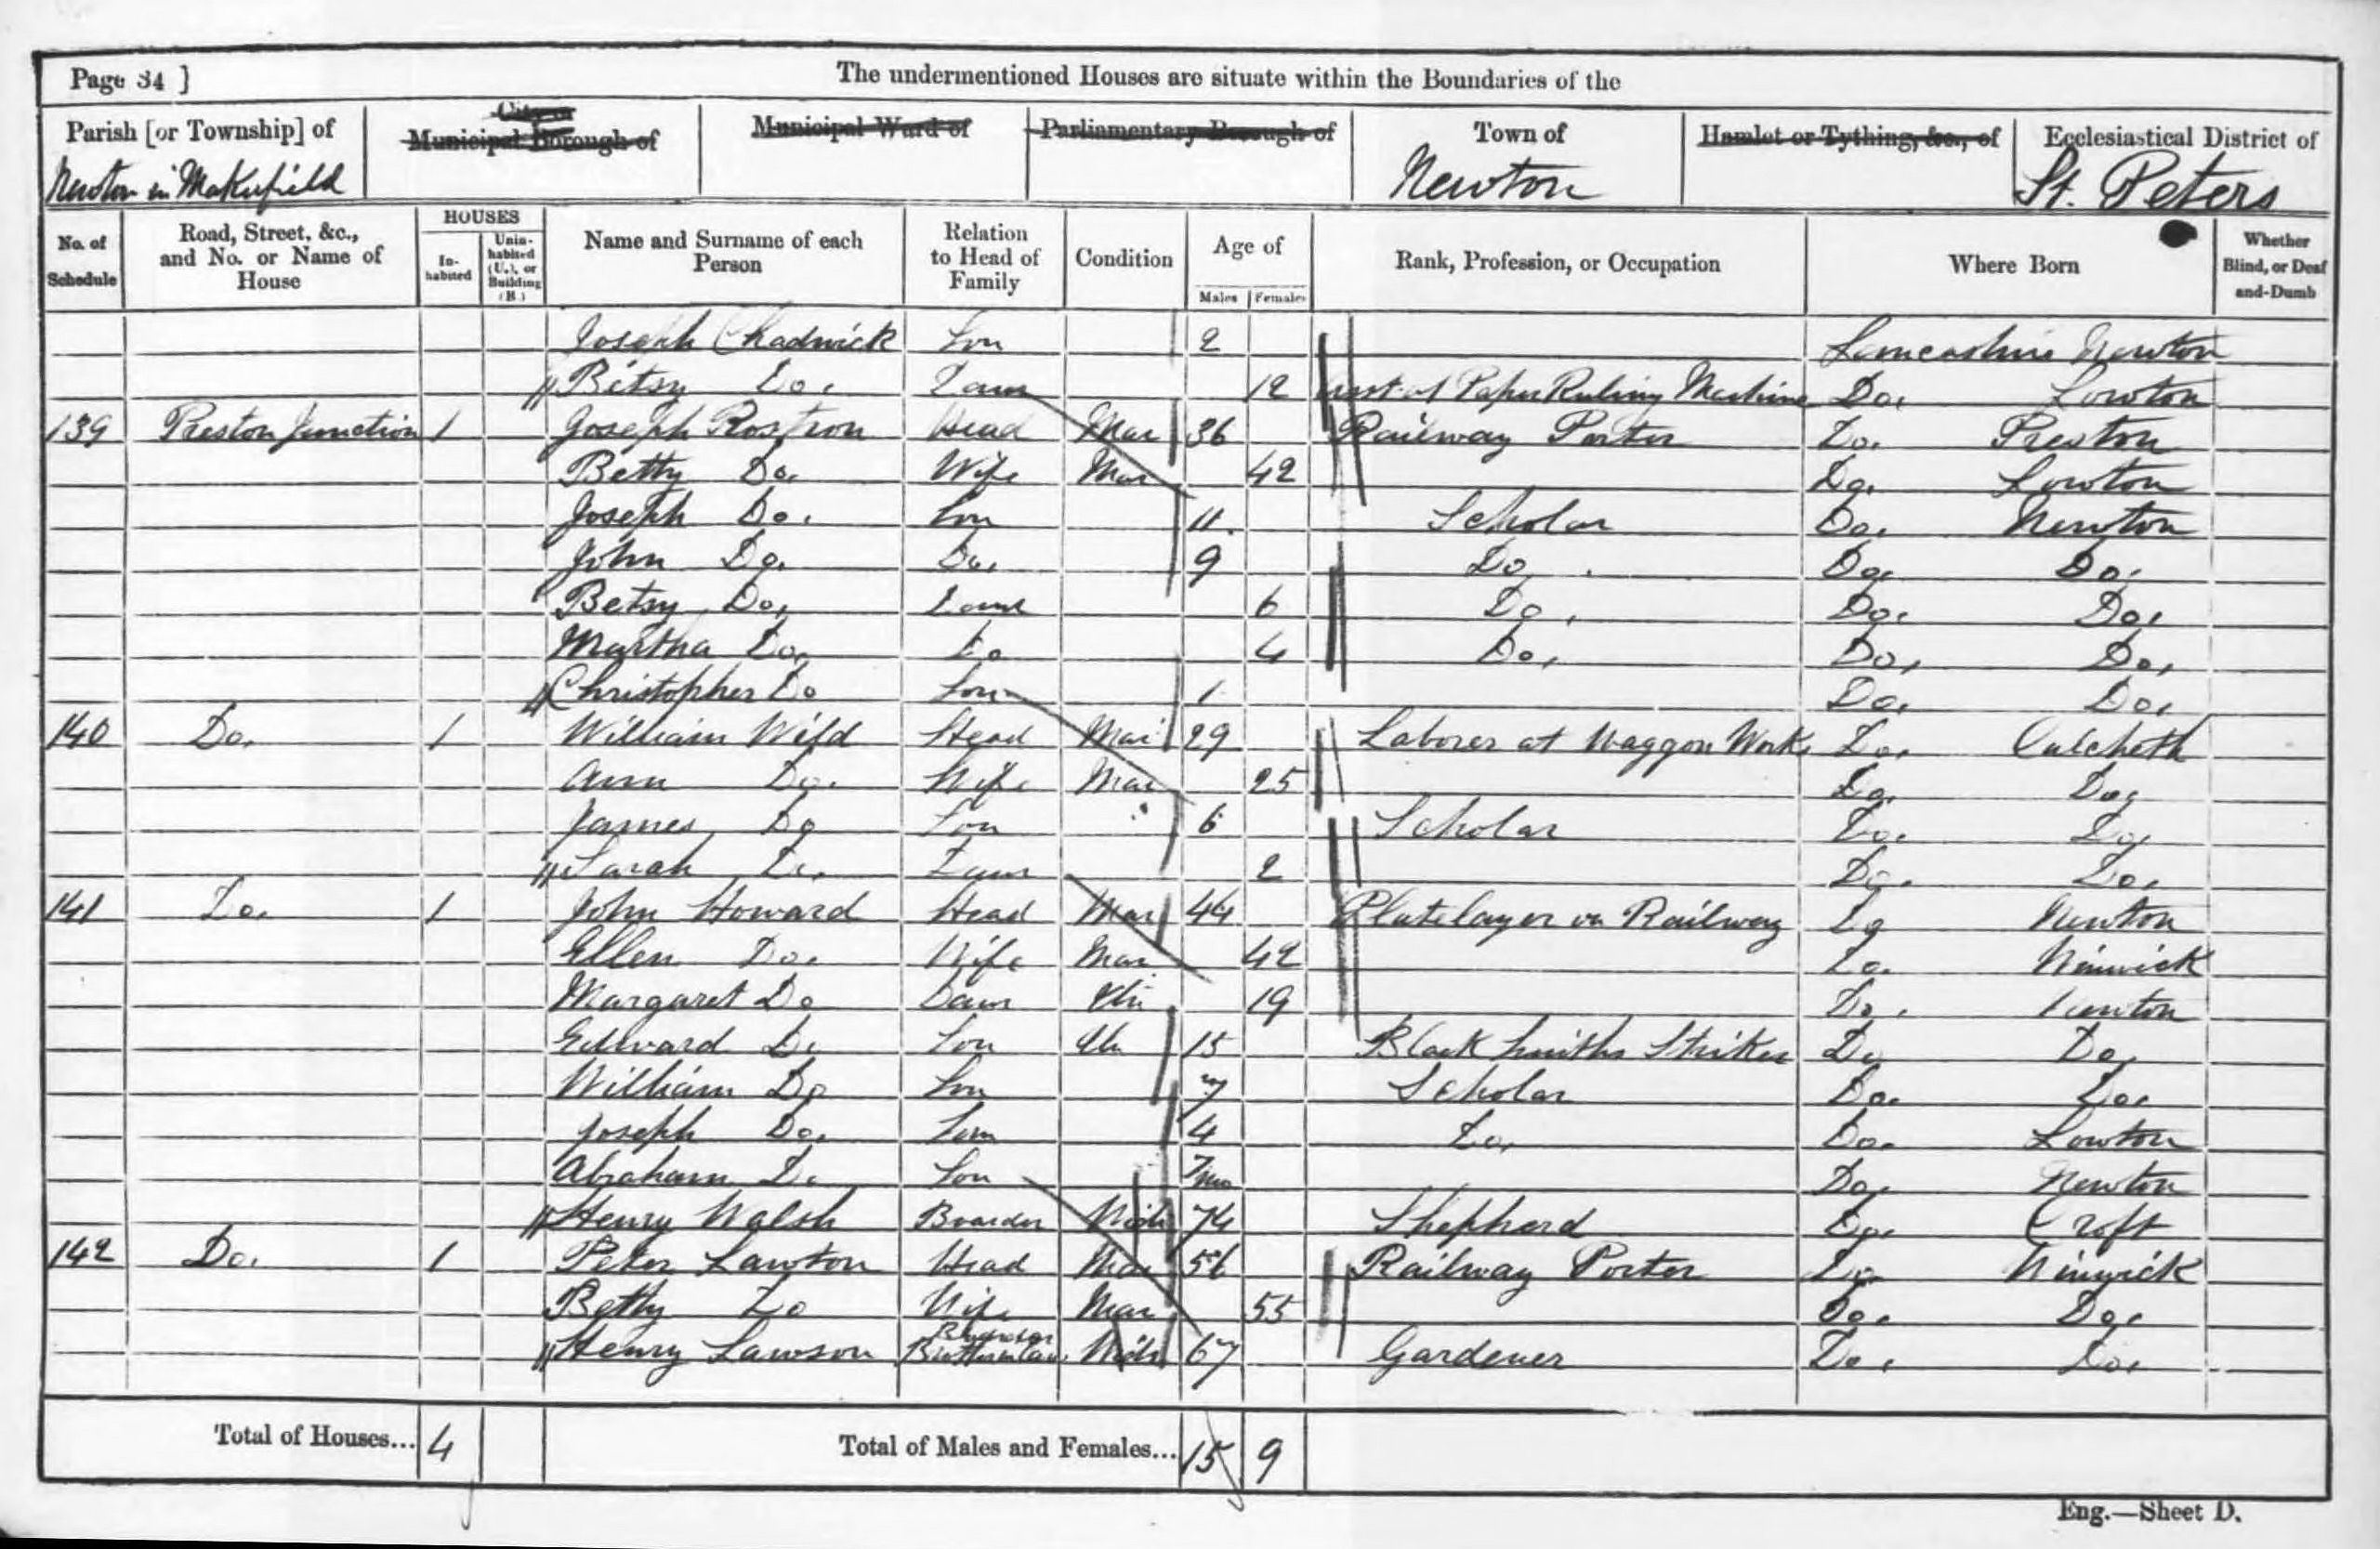 Page 34 ] The undermentioned Houses are situate within the Boundaries of the
Parish [or Township] of City or Municipal Borough of Municipal Ward of Parliamentary Borough of Town of Hamlet or Tything, &c., of Ecclesiastical District of
Newton in Makerfield Newton St. Peters
No. of Schedule Road, Street, &c., and No. or Name of House HOUSES In-habited Unin-habited (U.), or Building (B.) Name and Surname of each Person Relation to Head of Family Condition Age of Males Females Rank, Profession, or Occupation Where Born Whether Blind, or Deaf-and-Dumb
Joseph Chadwick Son 2 Lancashire Newton
Betsy Do. Daur 12 at Paper Ruling Machine Do. Lowton
139 Preston Junction 1 Joseph Rostron Head Mar 36 Railway Porter Do. Preston
Betty Do. Wife Mar 42 Do. Lowton
Joseph Do. Son 11 Scholar Do. Newton
John Do. Do. 9 Do. Do. Do.
Betsy Do. Daur 6 Do. Do. Do.
Martha Do. Do 4 Do. Do. Do.
Christopher Do Son 1 Do. Do.
140 Do. 1 William Wild Head Mar 29 Laborer at Waggon Works Do. Culcheth
Ann Do. Wife Mar 25 Do. Do.
James Do Son 6 Scholar Do. Do.
Sarah Do. Daur 2 Do. Do.
141 Do. 1 John Howard Head Mar 44 Platelayer on Railway Do Newton
Ellen Do. Wife Mar 42 Do. Winwick
Margaret Do Daur Un 19 Do. Newton
Edward Do Son Un 15 Black Smiths Striker Do Do.
William Do Son 7 Scholar Do. Do.
Joseph Do. Son 4 Do. Do. Lowton
Abraham Do Son 7mo Do. Newton
Henry Walsh Boarder Wid 74 Shepherd Do. Croft
142 Do. 1 Peter Lawton Head Mar 56 Railway Porter Do. Winwick
Betty Do Wife Mar 55 Do. Do.
Henry Lawson Boarder Brother in law Wid 67 Gardener Do. Do.
Total of Houses... 4 Total of Males and Females... 15 9
Eng.—Sheet D.